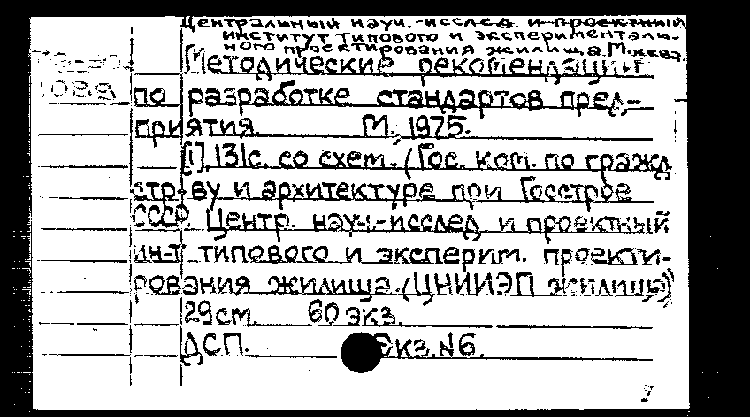 Центральный науч.-исслед. и проектный
институт типового и эксперименталь-
ного проектирования жилища. Москва.
Методические рекомендации
1088 по разработке стандартов пред-
приятия. М., 1975.
[1], 131с. со схем. (Гос. ком. по гражд.
стр-ву и архитектуре при Госстрое
СССР. Центр. науч.-исслед. и проектный
ин-т типового и эксперим. проекти-
рования жилища. (ЦНИИЭП жилища))
29см. 60 экз.
ДСП. Экз. №6.